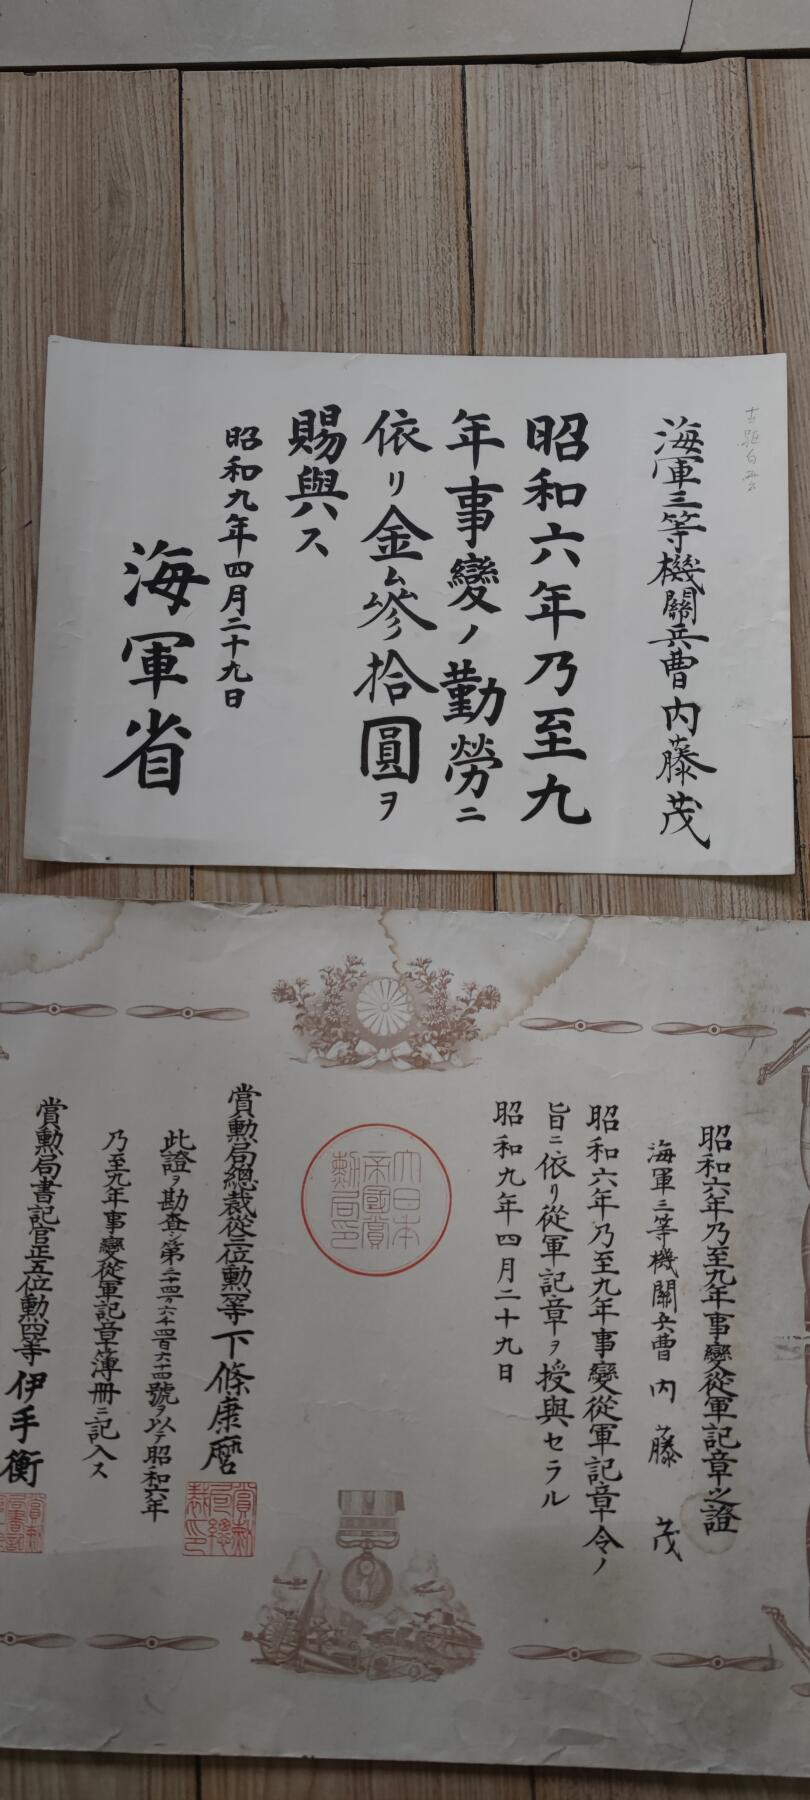 海軍三等機關兵曹 内藤茂
昭和六年乃至九
年事變ノ勤勞ニ
依リ金參拾圓ヲ
賜與ス
昭和九年四月二十九日
海軍省
昭和六年乃至九年事變從軍記章之證
海軍三等機關兵曹 内藤 茂
昭和六年乃至九年事變從軍記章令ノ
旨ニ依リ從軍記章ヲ授與セラル
昭和九年四月二十九日
大日本
帝國賞
勳局印
賞勳局總裁從三位勳一等 下條康麿
此證ヲ勘査シ第二十四万六千四百六十四號ヲ以テ昭和六年
乃至九年事變從軍記章簿册ニ記入ス
賞勳局書記官正五位勳四等 伊手衡